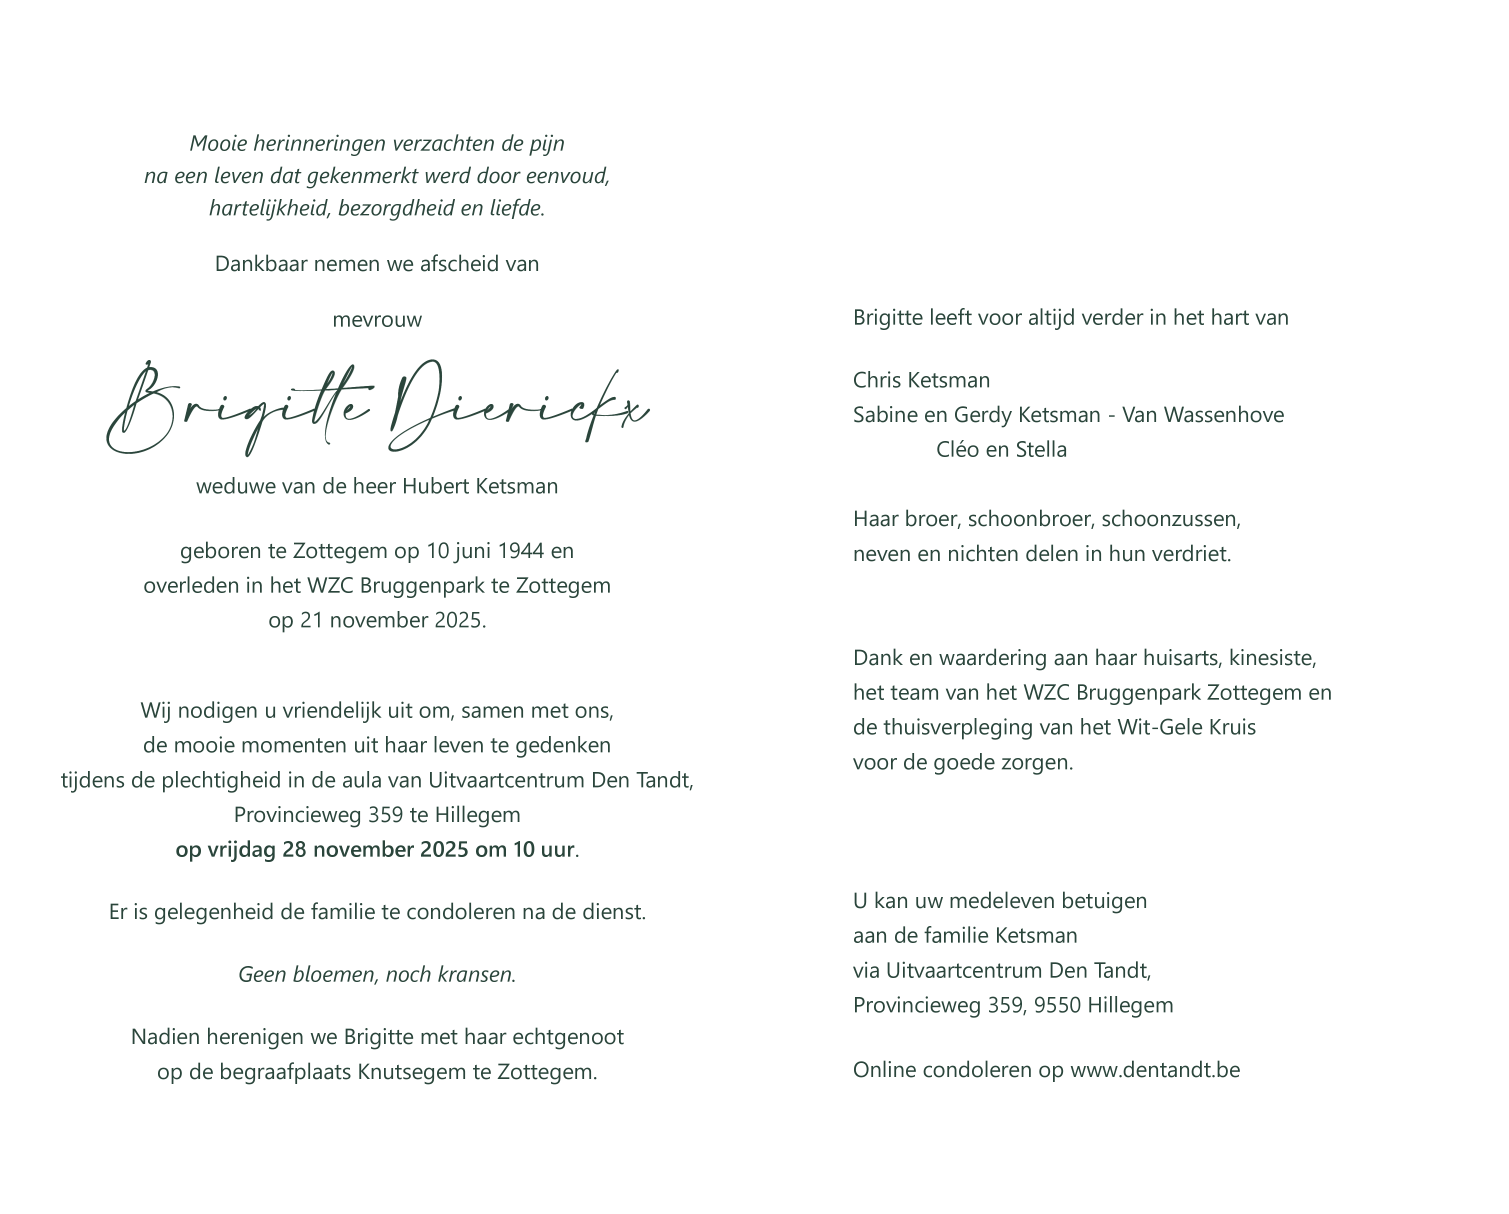 Mooie herinneringen verzachten de pijn
na een leven dat gekenmerkt werd door eenvoud,
hartelijkheid, bezorgdheid en liefde.
Dankbaar nemen we afscheid van
mevrouw
Brigitte Dierickx
weduwe van de heer Hubert Ketsman
geboren te Zottegem op 10 juni 1944 en
overleden in het WZC Bruggenpark te Zottegem
op 21 november 2025.
Wij nodigen u vriendelijk uit om, samen met ons,
de mooie momenten uit haar leven te gedenken
tijdens de plechtigheid in de aula van Uitvaartcentrum Den Tandt,
Provincieweg 359 te Hillegem
op vrijdag 28 november 2025 om 10 uur.
Er is gelegenheid de familie te condoleren na de dienst.
Geen bloemen, noch kransen.
Nadien herenigen we Brigitte met haar echtgenoot
op de begraafplaats Knutsegem te Zottegem.
Brigitte leeft voor altijd verder in het hart van
Chris Ketsman
Sabine en Gerdy Ketsman - Van Wassenhove
Cléo en Stella
Haar broer, schoonbroer, schoonzussen,
neven en nichten delen in hun verdriet.
Dank en waardering aan haar huisarts, kinesiste,
het team van het WZC Bruggenpark Zottegem en
de thuisverpleging van het Wit-Gele Kruis
voor de goede zorgen.
U kan uw medeleven betuigen
aan de familie Ketsman
via Uitvaartcentrum Den Tandt,
Provincieweg 359, 9550 Hillegem
Online condoleren op www.dentandt.be